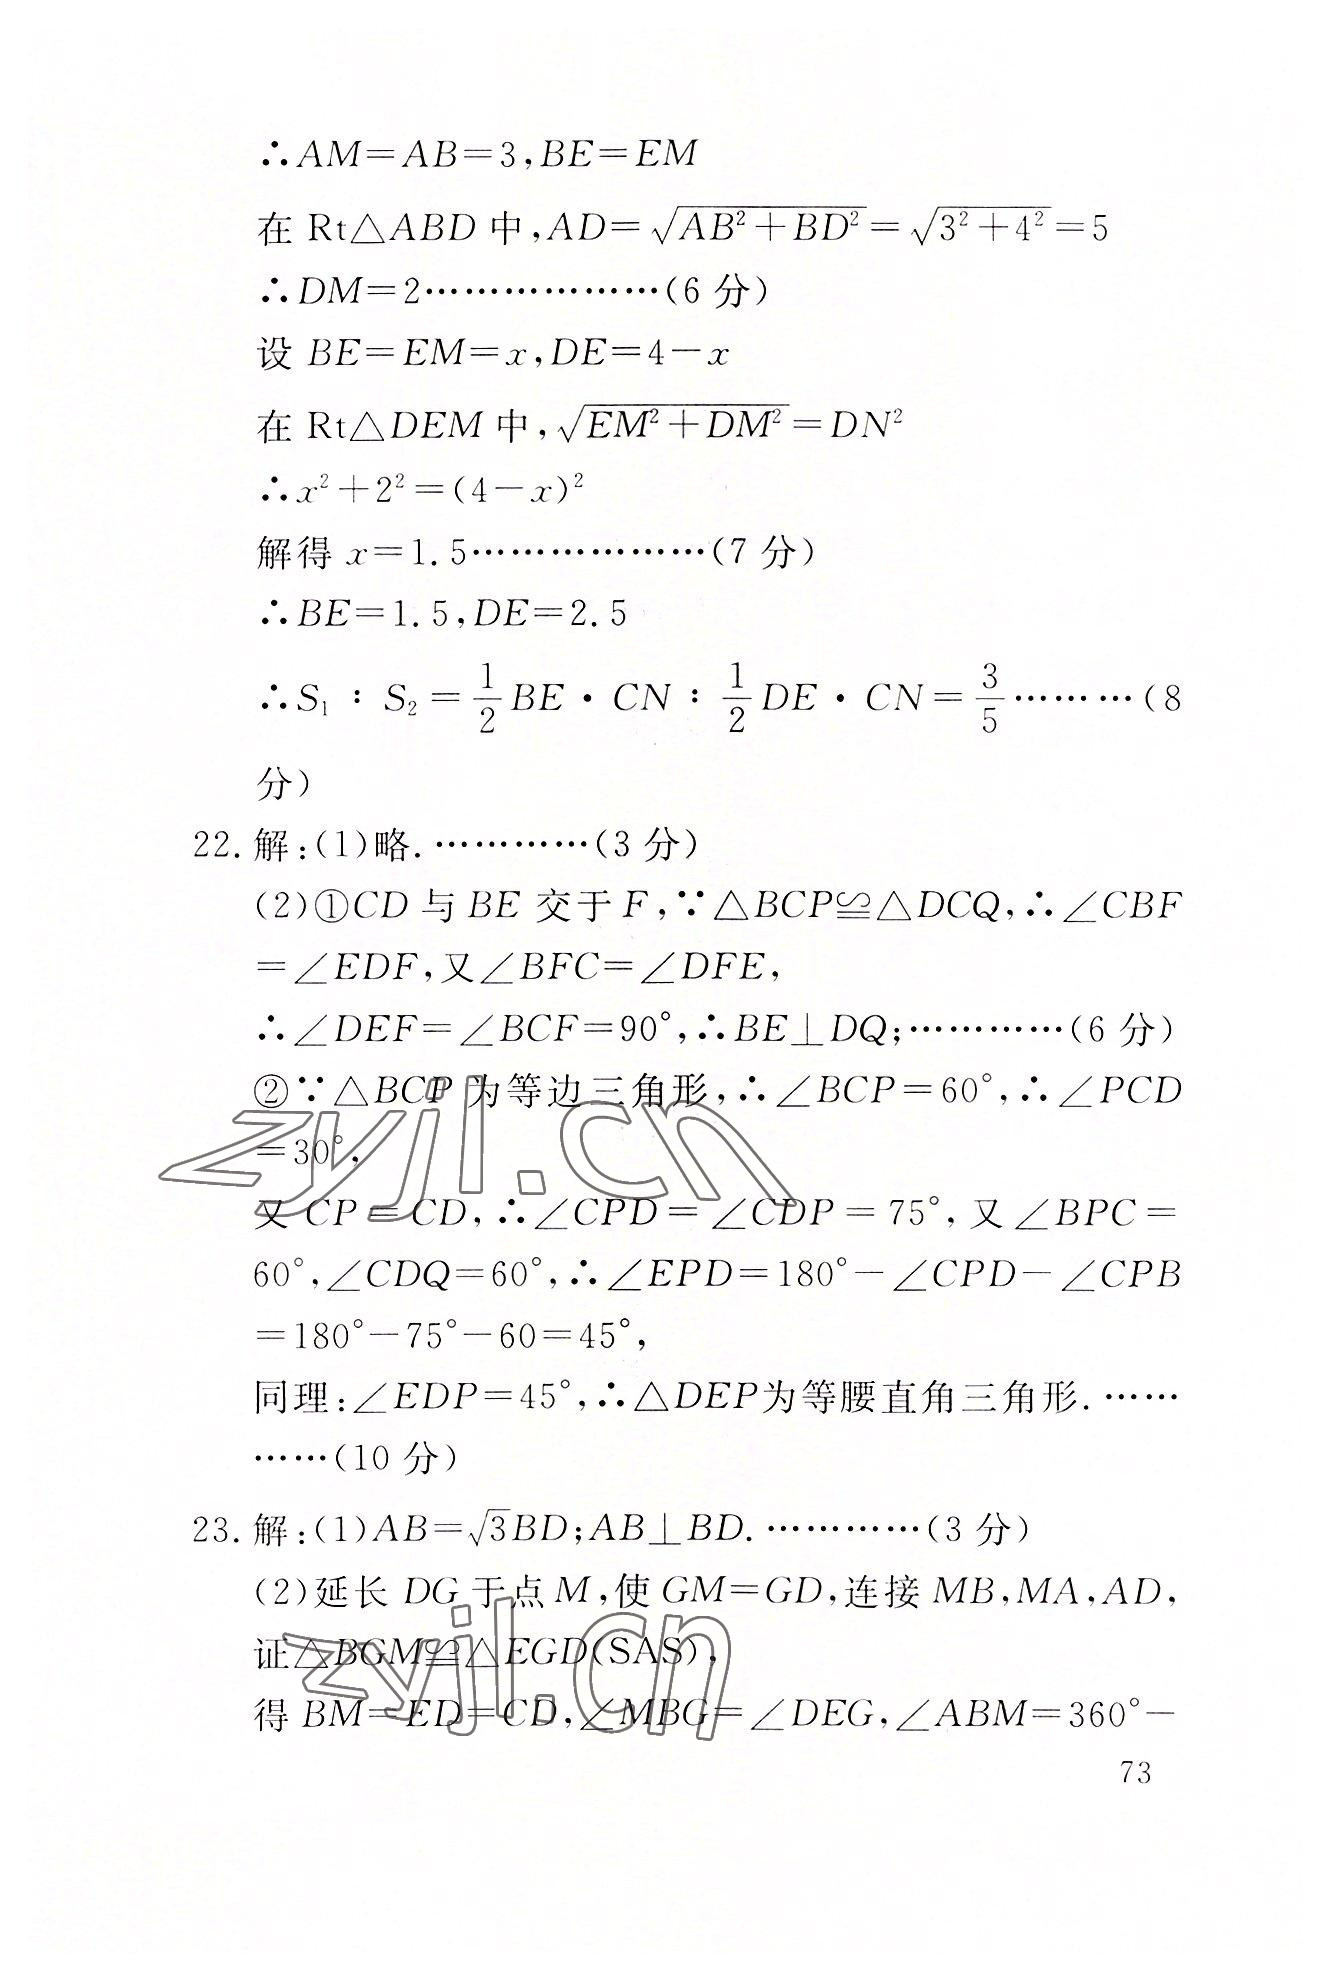 ∴AM=AB=3,BE=EM
在 Rt△ABD 中,AD=√(AB²+BD²)=√(3²+4²)=5
∴DM=2………………(6 分)
设 BE=EM=x,DE=4-x
在 Rt△DEM 中,√(EM²+DM²)=DN²
∴x²+2²=(4-x)²
解得 x=1.5………………(7 分)
∴BE=1.5,DE=2.5
∴S₁:S₂=1/2BE·CN:1/2DE·CN=3/5………(8
分)
22.解:(1)略.…………(3 分)
(2)①CD 与 BE 交于 F,∵△BCP≌△DCQ,∴∠CBF
=∠EDF,又∠BFC=∠DFE,
∴∠DEF=∠BCF=90°,∴BE⊥DQ;…………(6 分)
②∵△BCP 为等边三角形,∴∠BCP=60°,∴∠PCD
=30°,
又 CP=CD,∴∠CPD=∠CDP=75°,又∠BPC=
60°,∠CDQ=60°,∴∠EPD=180°-∠CPD-∠CPB
=180°-75°-60=45°,
同理:∠EDP=45°,∴△DEP为等腰直角三角形.……
……(10 分)
23.解:(1)AB=√3BD;AB⊥BD.…………(3 分)
(2)延长 DG 于点 M,使 GM=GD,连接 MB,MA,AD,
证△BGM≌△EGD(SAS),
得 BM=ED=CD,∠MBG=∠DEG,∠ABM=360°-
73
zyjl.cn
zyjl.cn